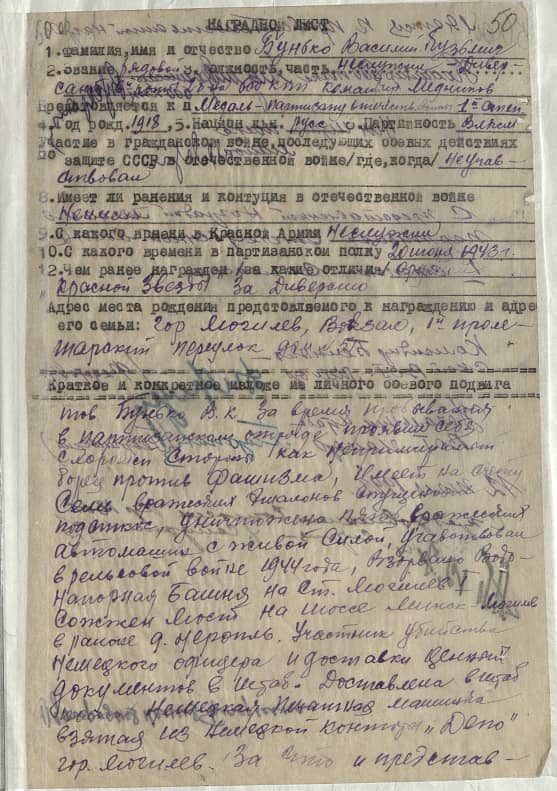 50
НАГРАДНОЙ ЛИСТ
1. Фамилия, имя и отчество Бунько Василий Кузьмич
2. Звание Рядовой 3. Должность, часть Неслужил - Дивер-
сант
Представляется к п. Медаль-партизану отечеств. войны 1й степ.
4. Год рожд. 1918, 5. Национ. бел. русс 6. Партийность Влксм
Участие в гражданской войне, последующих боевых действиях
по защите СССР в отечественной войне /где, когда/ Неучав-
ствовал
8. Имеет ли ранения и контузии в отечественной войне
Неимеет
9. С какого времени в Красной Армии Неслужил
10. С какого времени в партизанском полку 20 июня 1943 г.
12. Чем ранее награжден /за какие отличия/ Орден
"Красной Звезды" За Диверсию
Адрес места рождения представляемого к награждению и адрес
его семьи: Гор Могилев, Вокзал, 1й проле-
тарский переулок дом
Краткое и конкретное изложение личного боевого подвига
тов Бунько В.К. За время пребывания
в партизанском отряде проявил себя
с хорошей Стороны как Непримиримый
борец против Фашизма, Имеет на счету
Семь вражеских Эшалонов спущенных
под откос, уничтожена пять вражеских
автомашин с живой Силой, Учавствовал
в рельсовой войне 1944 года, Взорвано Водо-
напорная Башня на Ст. Могилев I
Сожжен Мост на шоссе Минск-Могилев
в районе д. Нерополь. Участник убийства
Немецкого офицера и доставки ценных
документов в штаб. Доставлена в штаб
полка Немецкая Печатная машинка
взятая из Немецкой конторы "Депо"
гор. Могилев. За что и представ-